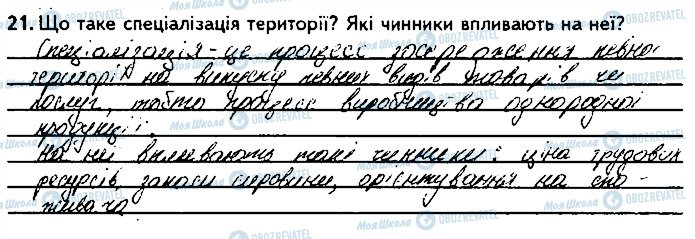 21. Що таке спеціалізація території? Які чинники впливають на неї?
Спеціалізація - це процесс зосередження певної
території на випуску певних видів товарів чи
послуг, тобто процесс виробництва однородної
продукції.
На неї впливають такі чинники: ціна трудових
ресурсів, запаси сировини, орієнтування на спо-
живача